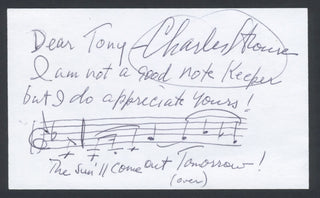 Dear Tony - Charles Strouse
I am not a good note keeper
but I do appreciate yours!
The sun'll come out Tomorrow!
(over)